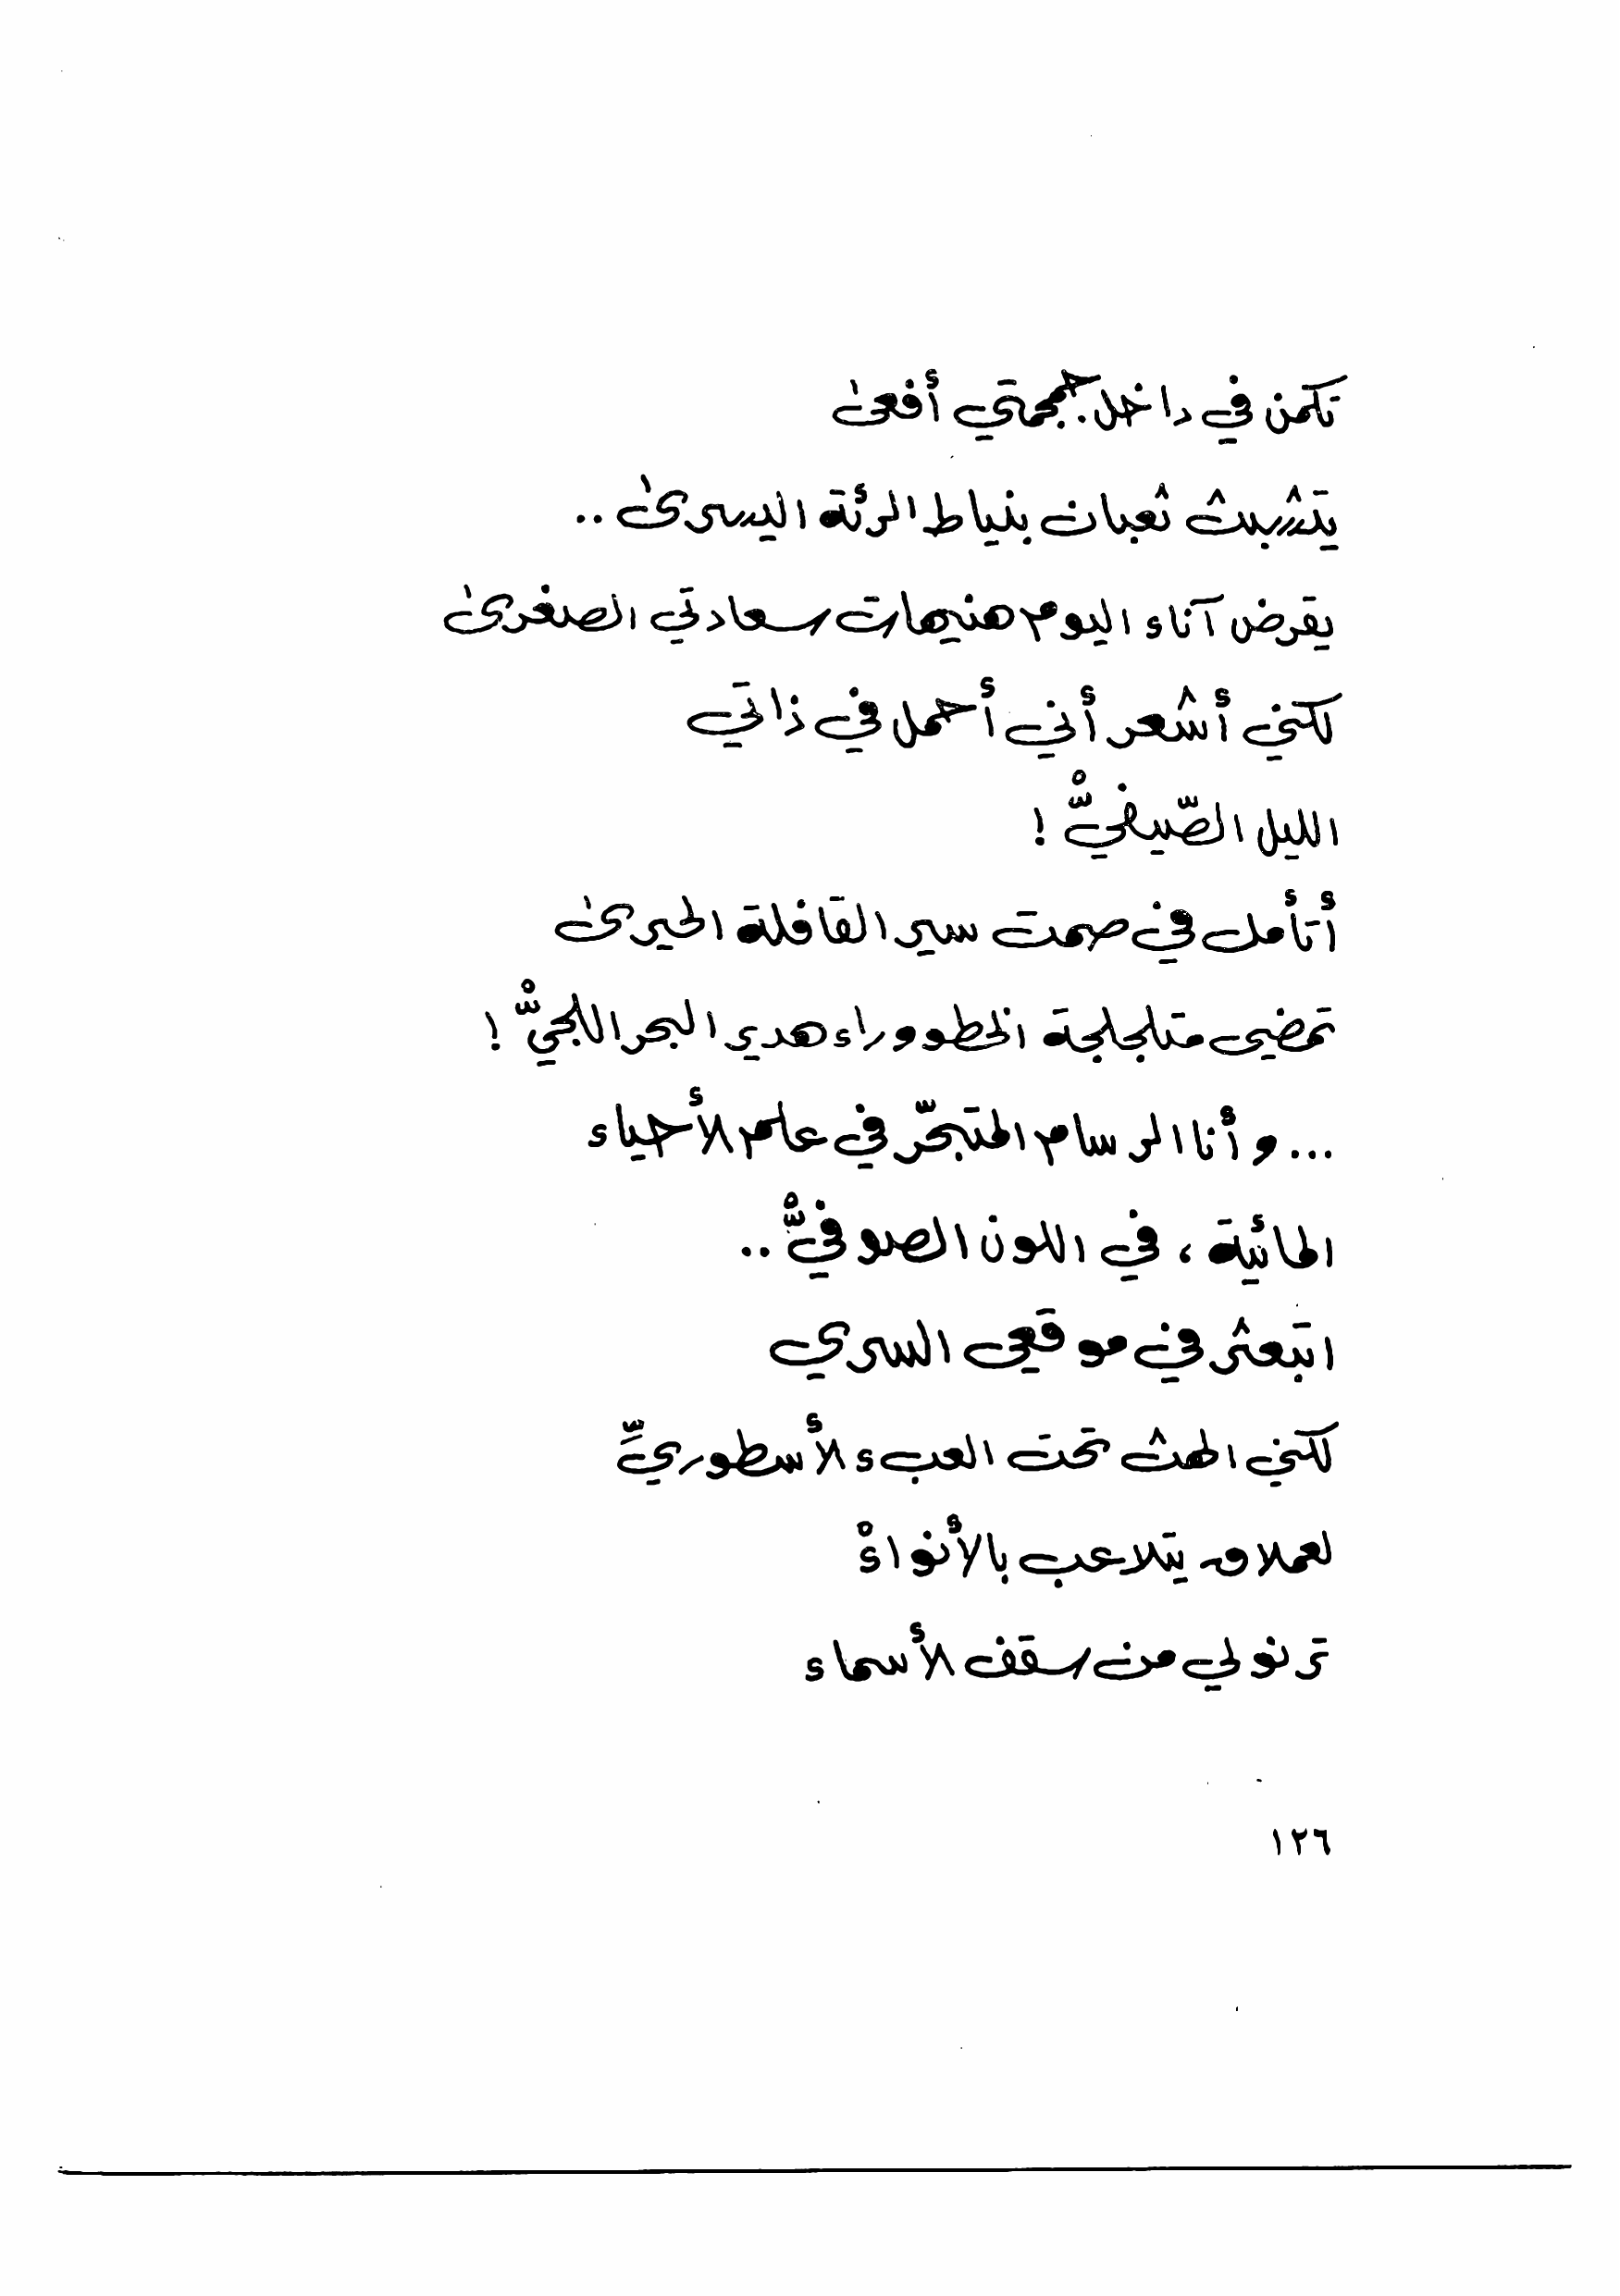 تكمن في داخل جمجمتي أفعىٰ
يتشبث ثعبان بنياط الرئة اليسرىٰ ..
يقرض آناء اليوم هنيهات سعادتي الصغرىٰ
لكني أشعر أني أحمل في ذاتي
الليل الصّيفيّْ !
أتأمل في صمت سير القافلة الحيرىٰ
تمضي متلجلجة الخطو وراء هدير البحر اللجيّْ !
... وأنا الرسام المتبحّر في علم الأحياء
المائية ، في اللون الصوفيّْ ..
اتبعثر في موقعي السري
لكني الهث تحت العبء الأسطوريِّ
لعملاق يتلاعب بالأنواءْ
ترنو لي من سقف الأسماء
١٢٦